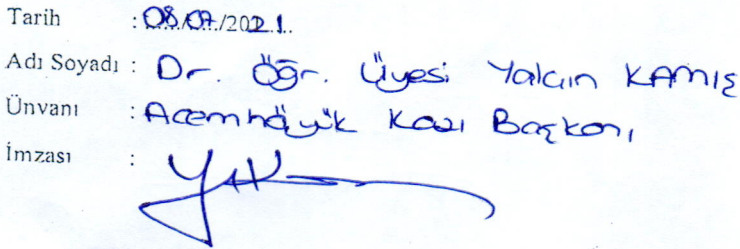 Tarih : 08/07/2021
Adı Soyadı : Dr. Öğr. Üyesi Yalçın KAMIŞ
Ünvanı : Acemhöyük Kazı Başkanı
İmzası :